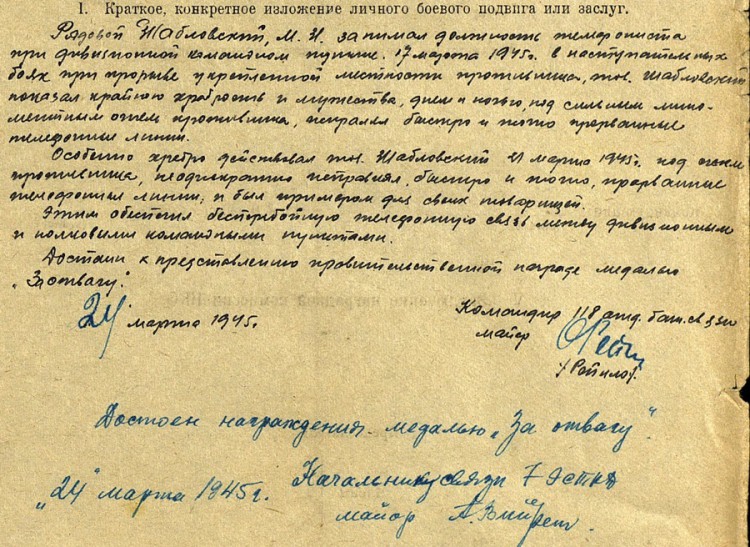 1. Краткое, конкретное изложение личного боевого подвига или заслуг.
Рядовой Шабловский, М. И. занимал должность телефониста
при дивизионной командном пункте. 17 марта 1945г. в наступательных
боях при прорыве укрепленной местности противника, тов. Шабловский
показал крайною храбрость и мужества, днем и ночью, под сильным мино-
метным огнем противника, исправлял быстро и точно прерванные
телефонные линии.
Особенно храбро действовал тов. Шабловский 21 марта 1945г. под огнем
противника, неоднократно исправлял, быстро и точно, прорванные
телефонные линии, и был примером для своих товарищей.
Этим обеспечил бесперебойную телефонную связь между дивизионным
и полковыми командными пунктами.
Достоин к представлению правительственной награде медалью
„За отвагу".
24 марта 1945г.
Командир 118 отд. бат. связи
майор
Достоен награждения медалью „За отвагу".
Начальник связи 7 Эстк
„24" марта 1945г.
майор А.